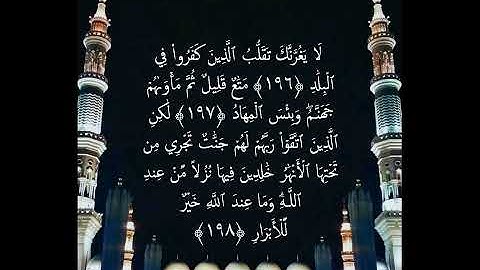 لَا يَغُرَّنَّكَ تَقَلُّبُ ٱلَّذِينَ كَفَرُواْ فِي
ٱلۡبِلَٰدِ ﴿١٩٦﴾ مَتَٰعٞ قَلِيلٞ ثُمَّ مَأۡوَىٰهُمۡ
جَهَنَّمُۖ وَبِئۡسَ ٱلۡمِهَادُ ﴿١٩٧﴾ لَٰكِنِ
ٱلَّذِينَ ٱتَّقَوۡاْ رَبَّهُمۡ لَهُمۡ جَنَّٰتٞ تَجۡرِي مِن
تَحۡتِهَا ٱلۡأَنۡهَٰرُ خَٰلِدِينَ فِيهَا نُزُلٗا مِّنۡ عِندِ
ٱللَّهِۗ وَمَا عِندَ ٱللَّهِ خَيۡرٞ
لِّلۡأَبۡرَارِ ﴿١٩٨﴾